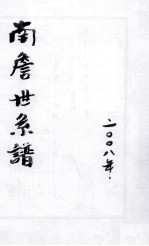 二〇〇八年.
南詹世系譜